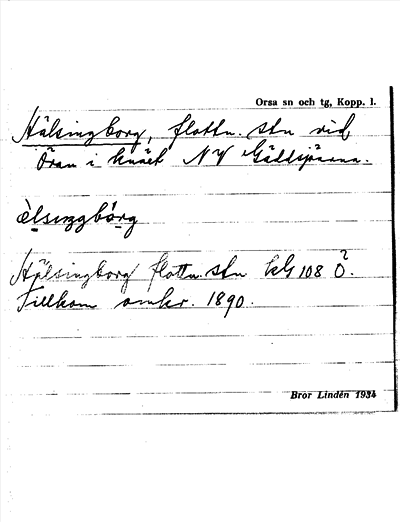 Orsa sn och tg, Kopp. l.
Hälsingborg, flottn. stn vid
Öran i knäet NV Gällsjärna.
èlsiŋgbórg
Hälsingborg flottn. stn kG 108 Ö?
Tillkom omkr. 1890.
Bror Lindén 1934